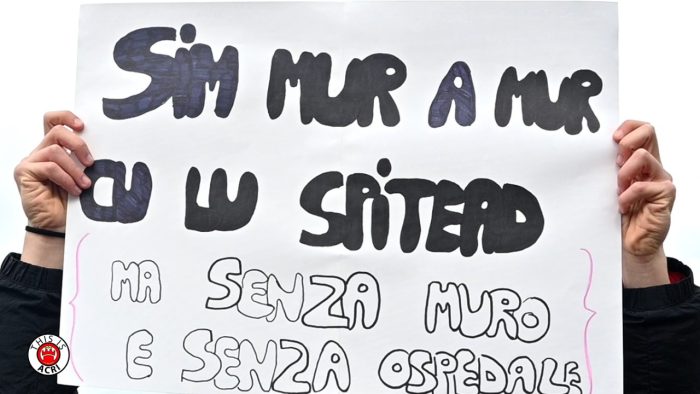 SiM MUR A MUR
CU LU SPiTEAD
MA SENZA MURO
E SENZA OSPEDALE
THIS IS
ACRI